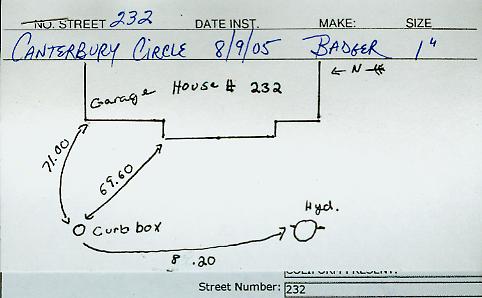 NO. STREET 232 DATE INST. MAKE: SIZE
CANTERBURY CIRCLE 8/9/05 BADGER 1"
Garage House # 232 N
71.00
69.60
Hyd.
Curb box
8.20
Street Number: 232